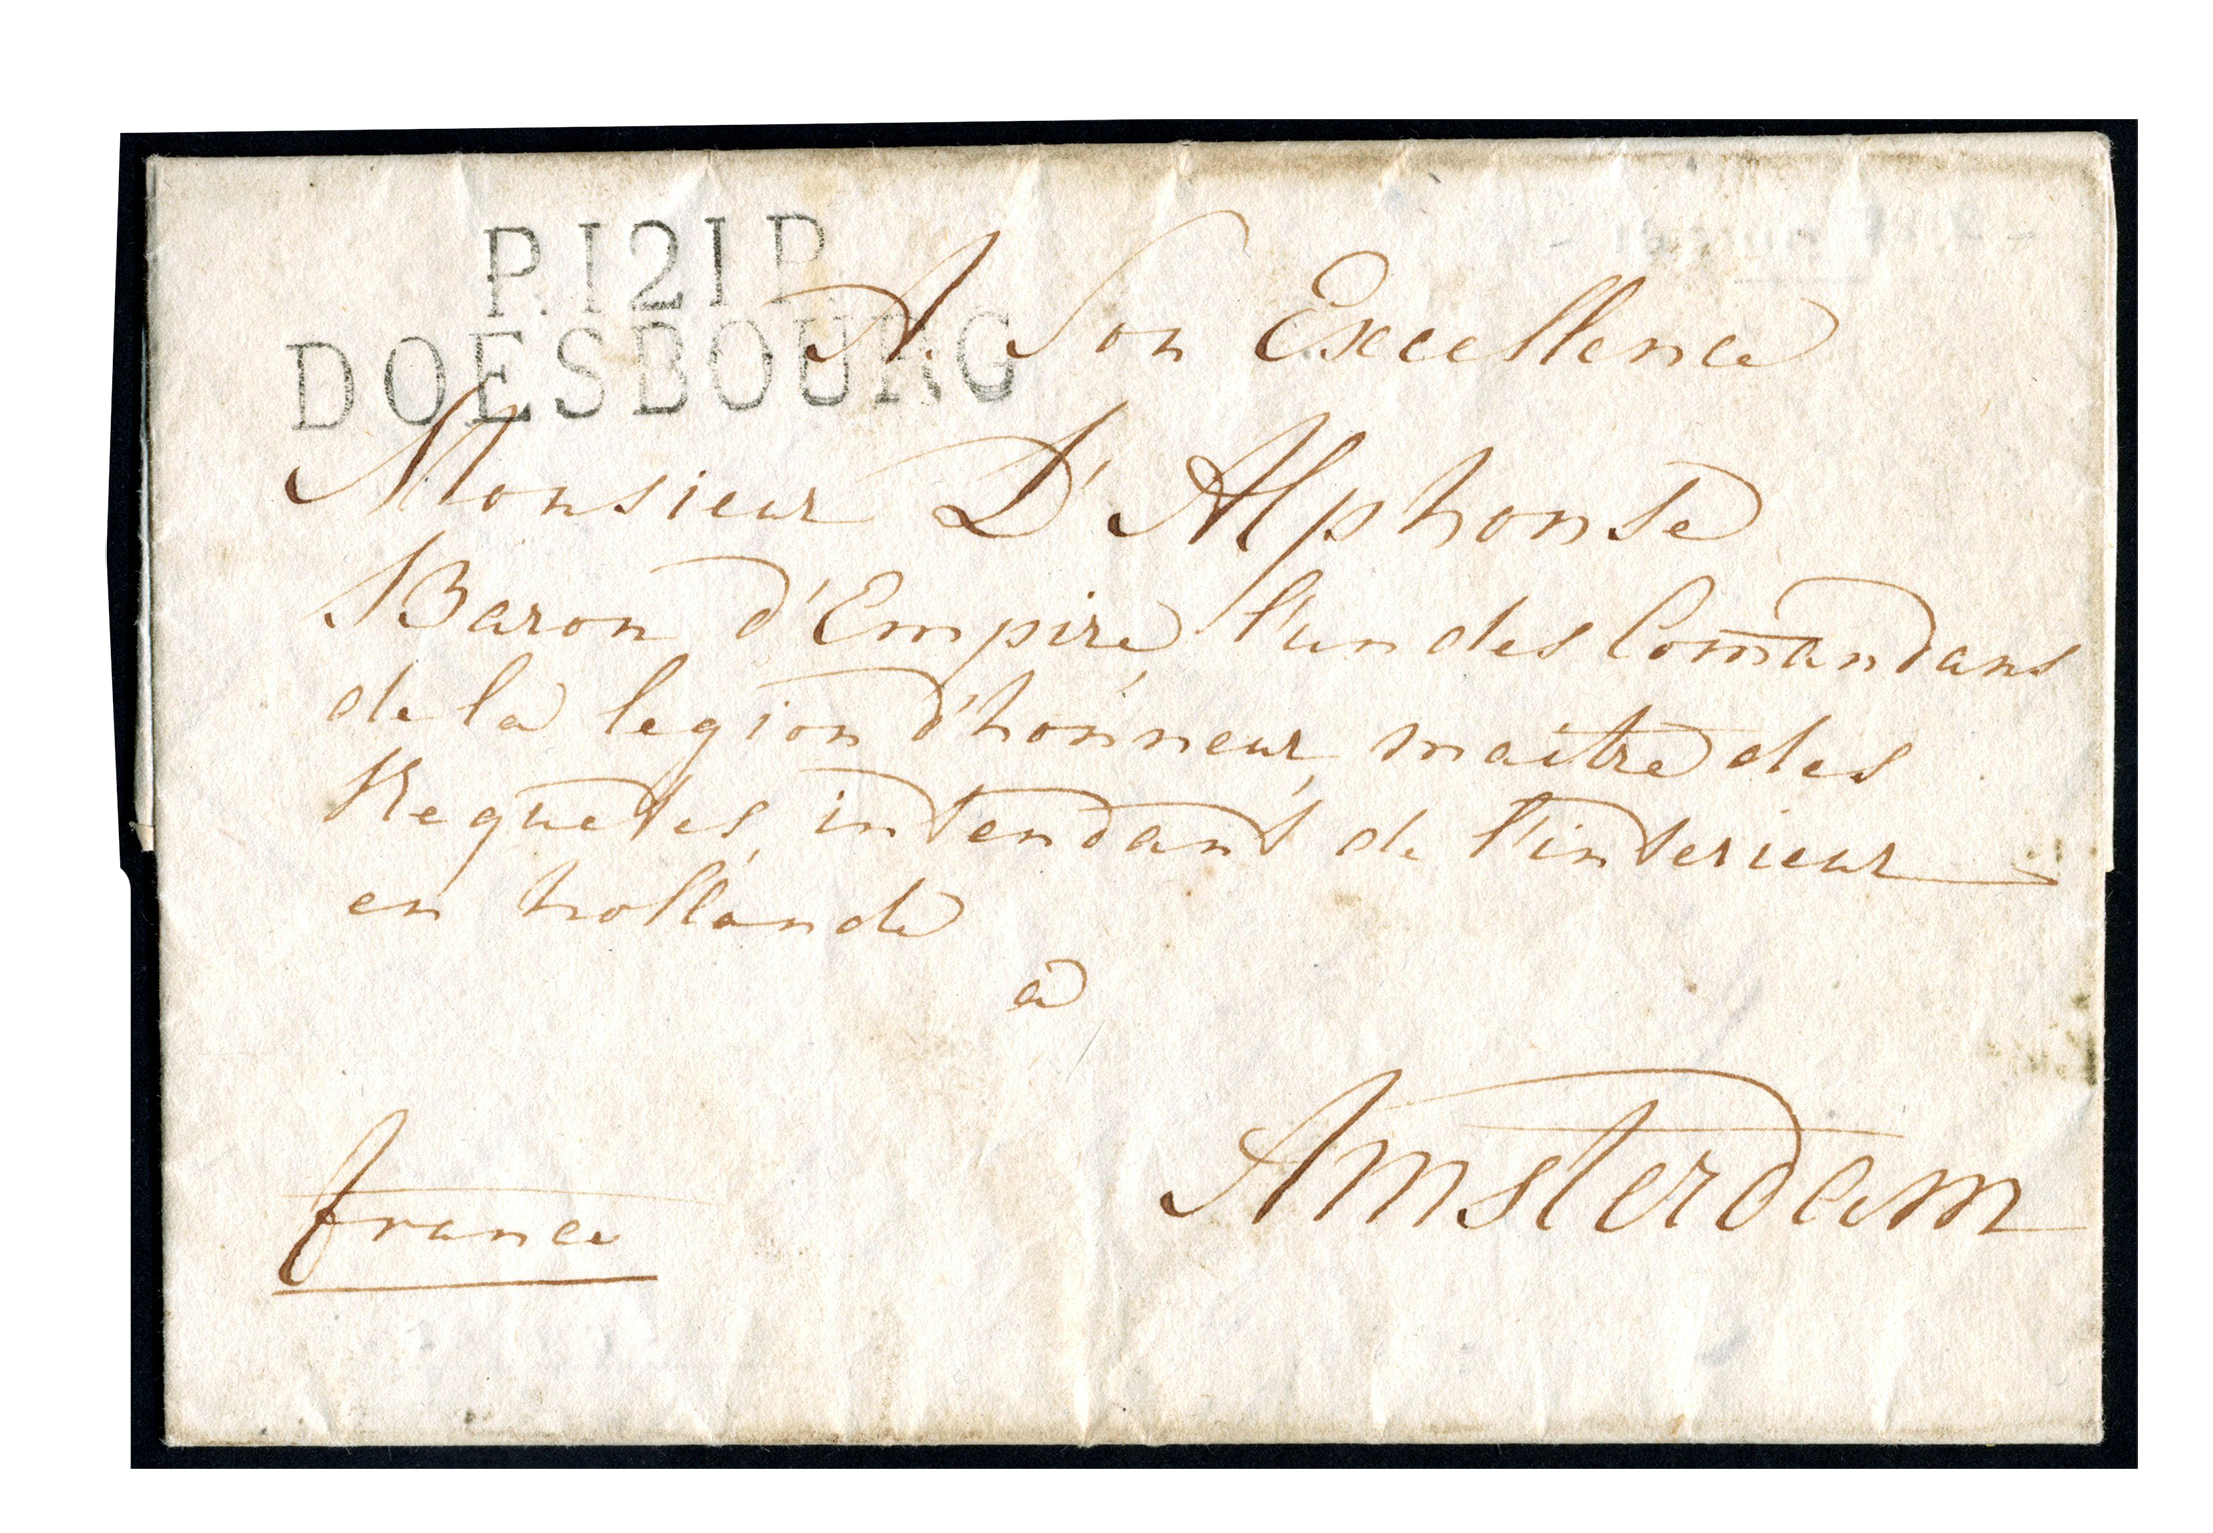 P.121.P.
DOESBOURG
A. Son Excellence
Monsieur D'Alphonse
Baron d'Empire, l'un des Comandans
de la legion d'honneur, maitre des
Requetes, intendant de l'interieur
en hollande
a
Amsterdam
france